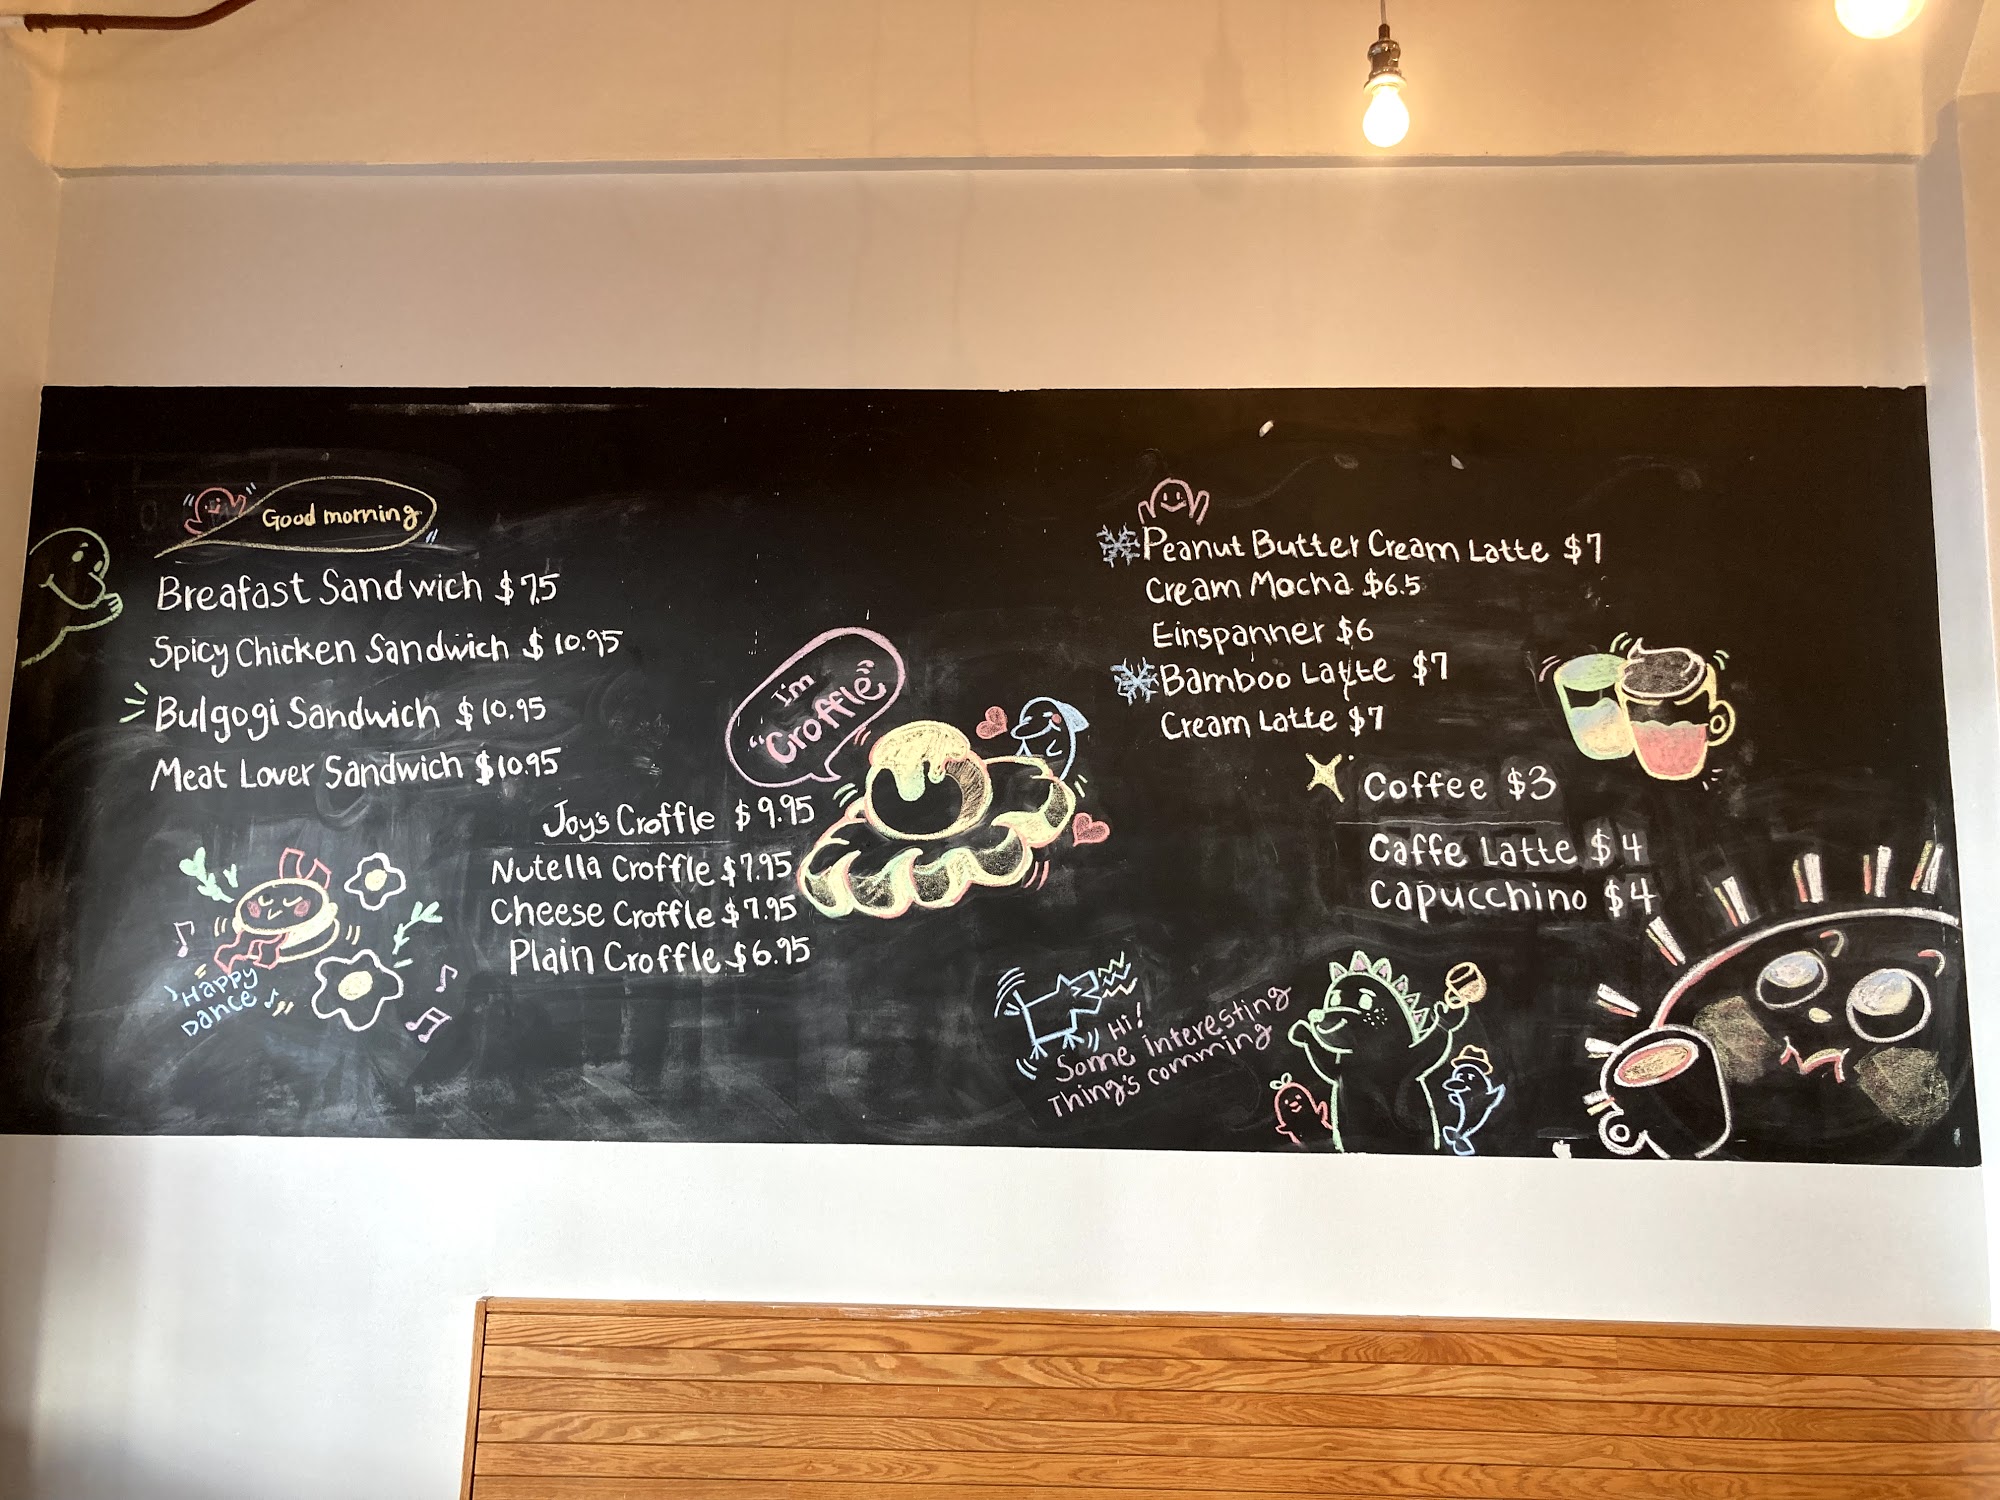 Good morning
Breafast Sandwich $7.5
Spicy Chicken Sandwich $10.95
Bulgogi Sandwich $10.95
Meat Lover Sandwich $10.95
"Happy
Dance"
I'm
"Croffle"
Joy's Croffle $9.95
Nutella Croffle $7.95
Cheese Croffle $7.95
Plain Croffle $6.95
Peanut Butter Cream Latte $7
Cream Mocha $6.5
Einspanner $6
Bamboo Latte $7
Cream Latte $7
Coffee $3
Caffe Latte $4
Capucchino $4
Hi!
Some interesting
Thing's comming